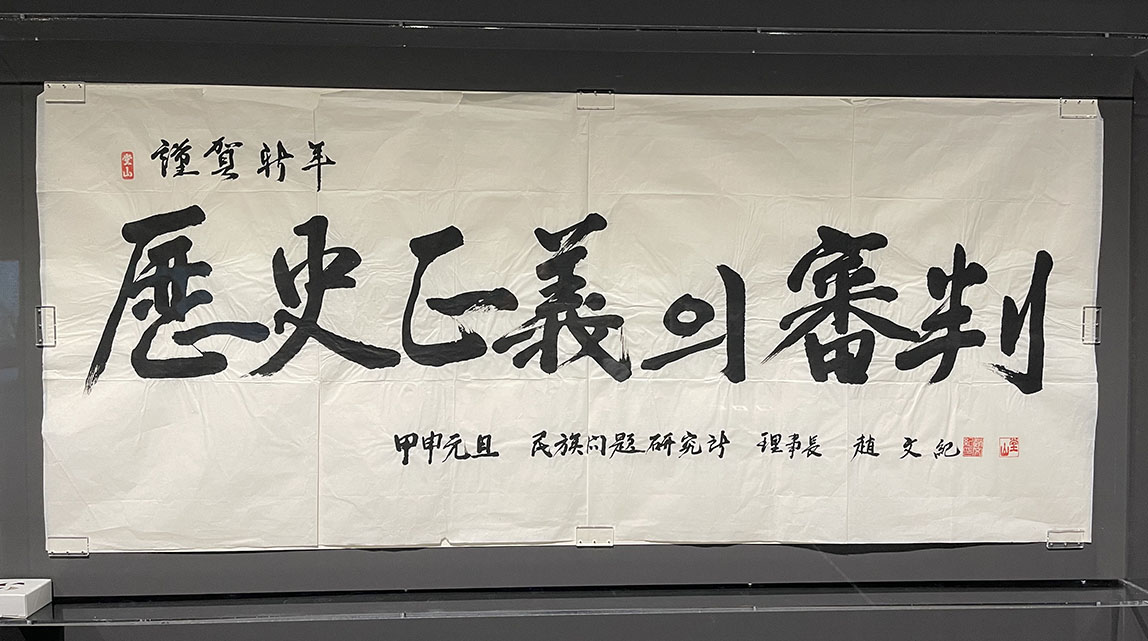 謹賀新年
歷史正義의 審判
甲申元旦 民族問題研究所 理事長 趙 文 紀